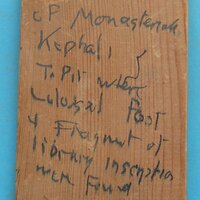 CP Monasteraki
Kephali }
T. Pit where
Colossal Foot
& Fragment of
library Inscription
were Found